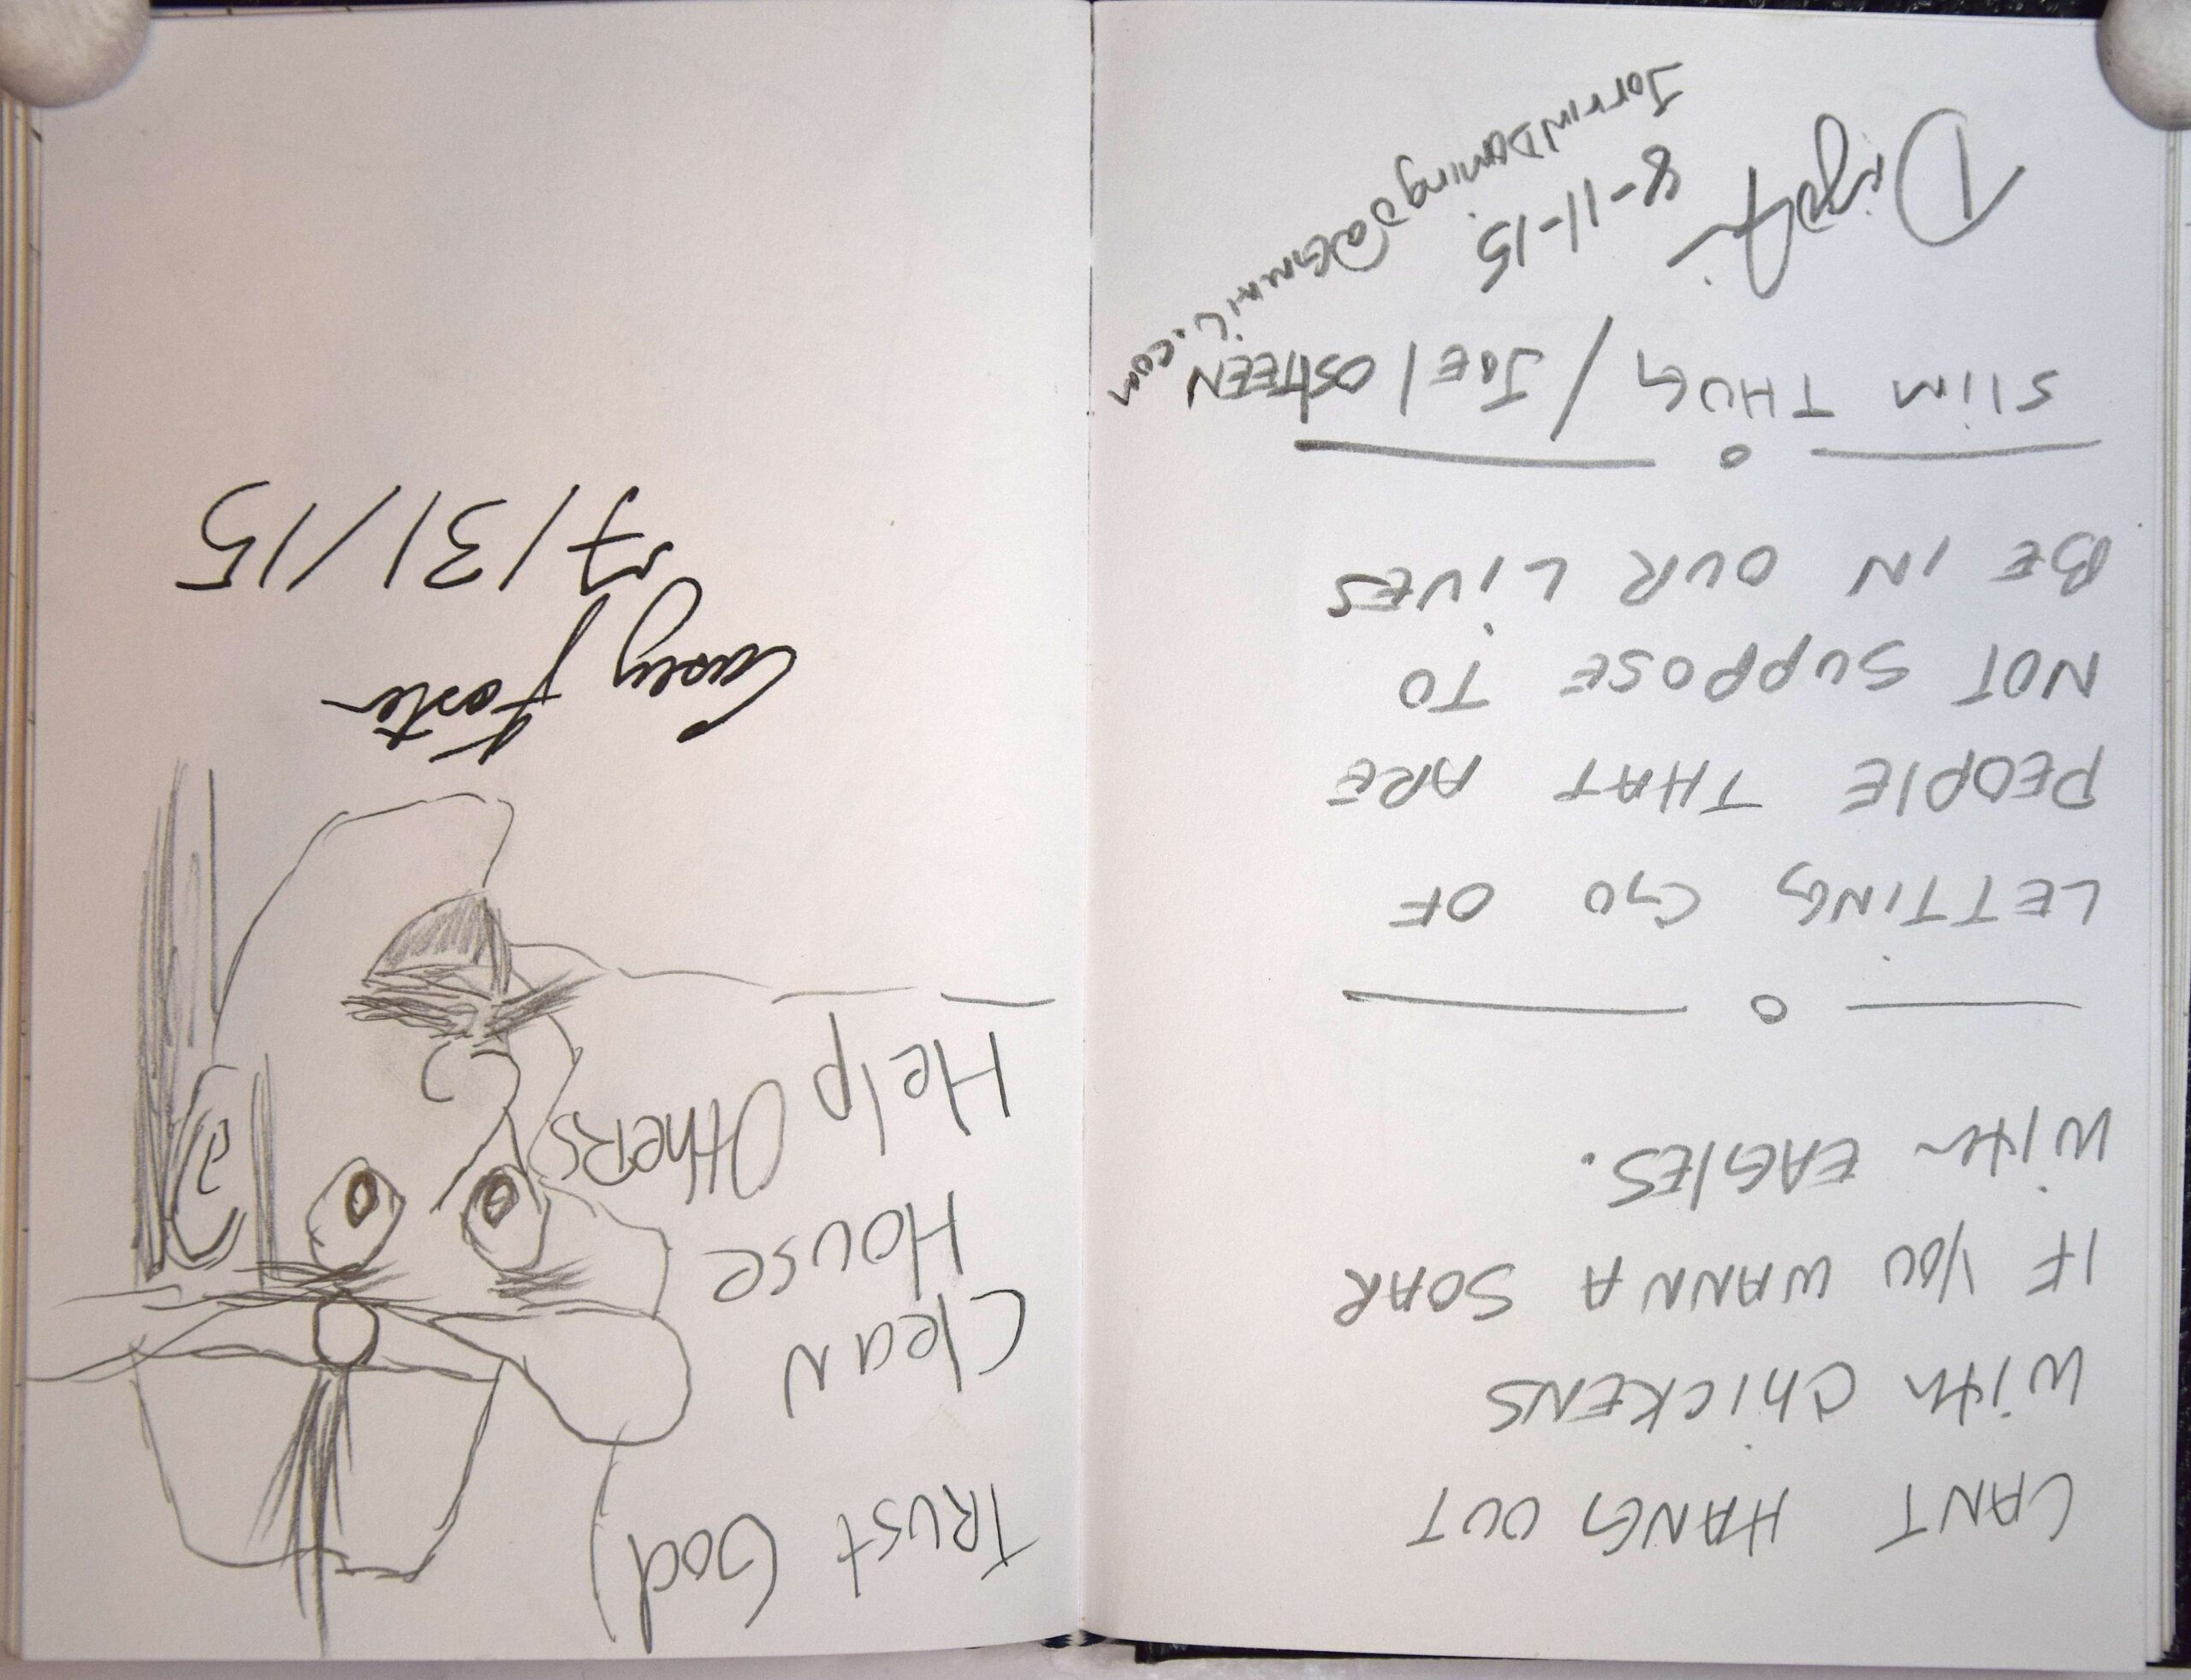 CANT HANG OUT
WITH CHICKENS
IF YOU WANNA SOAR
WITH EAGLES.
LETTING GO OF
PEOPLE THAT ARE
NOT SUPPOSE TO
BE IN OUR LIVES
SLIM THUG / JOEL OSTTEEN
8-11-15.
TRUST God
Clean
House
Help Others
Casey Foster
7/31/15